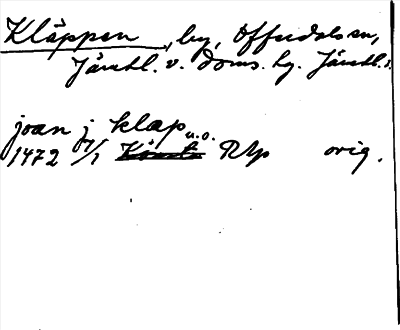 Kläppen, by, Offerdals sn,
Jämtl. v. doms. hg. Jämtl.
joan j klap u.o.
1472 7/1 RAp orig.